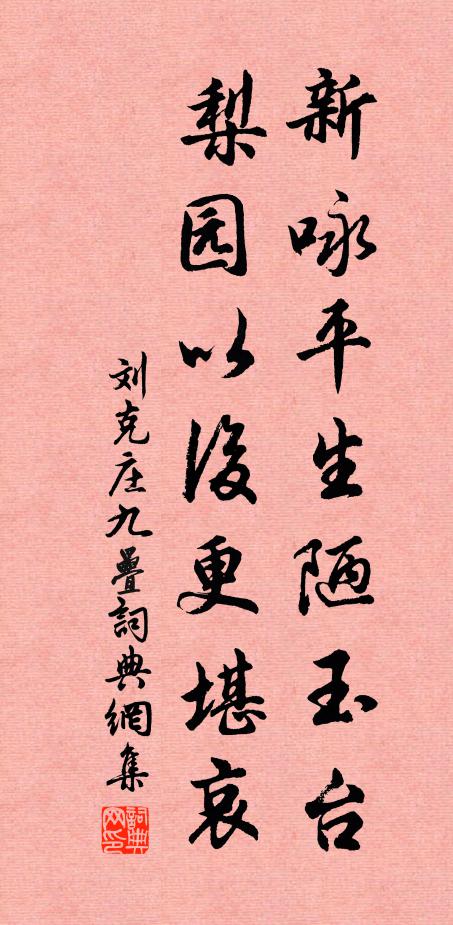 新咏平生陋玉台
梨园以後更堪哀
刘克庄九疊詞典網集
詞典网印